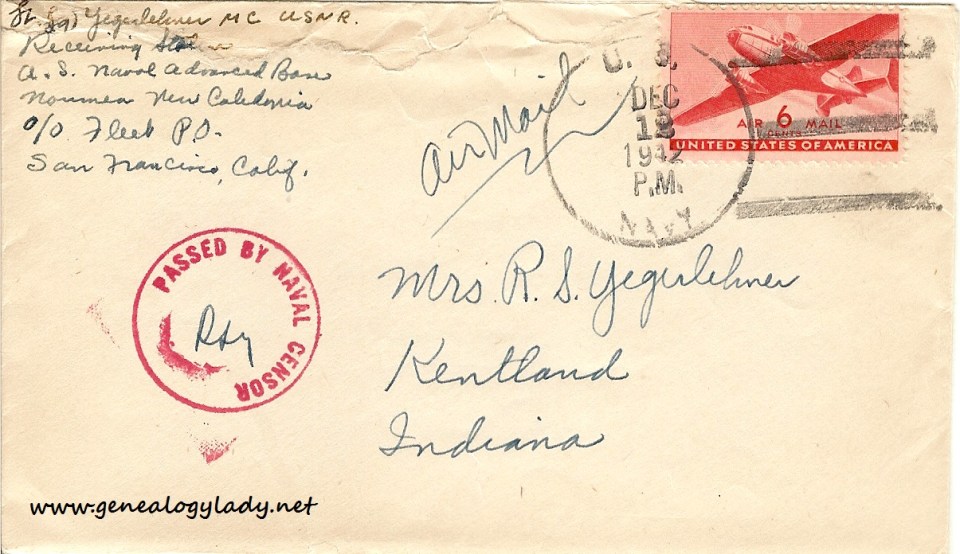 Yegerlehner MC USNR.
Receiving Station
U.S. Naval Advanced Base
Noumea New Caledonia
c/o Fleet P.O.
San Francisco, Calif.
Air Mail
U. S.
DEC
18
1942
P.M.
NAVY
AIR 6 MAIL
CENTS
UNITED STATES OF AMERICA
PASSED BY NAVAL CENSOR
Mrs. R. S. Yegerlehner
Kentland
Indiana
www.genealogylady.net